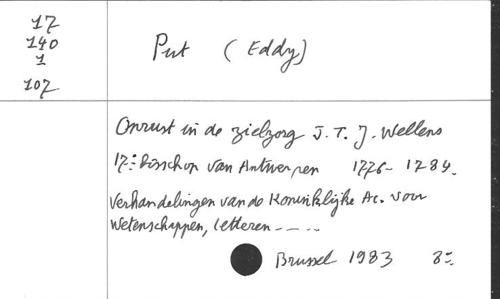 17
140
1
107
Put (Eddy)
Onrust in de zielzorg J. T. J. Wellens
17e Bisschop van Antwerpen 1776-1784.
Verhandelingen van de Koninklijke Ac. voor
Wetenschappen, letteren - - . .
Brussel 1983 8º